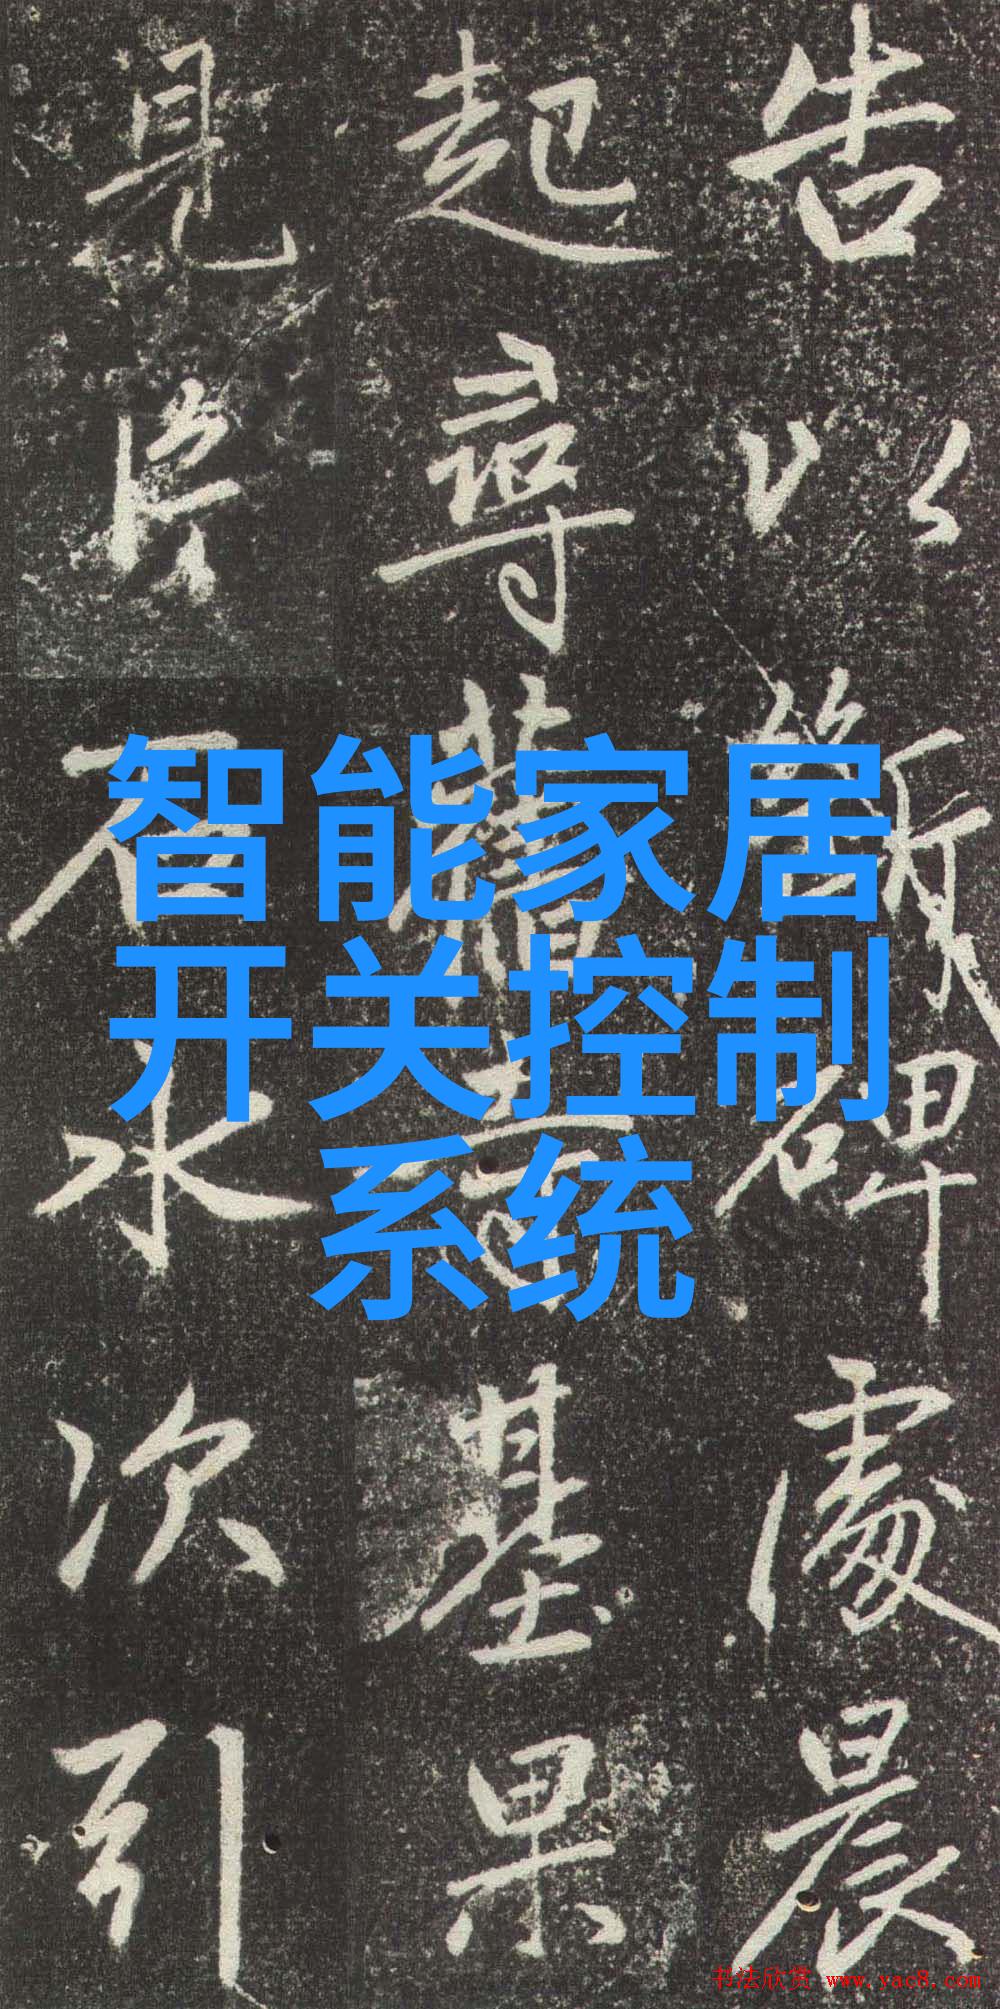 告以銜碑處晨
起尋舊基果
見片石水次引
智能家居
开关控制
系统
书法欣赏 www.yac8.com